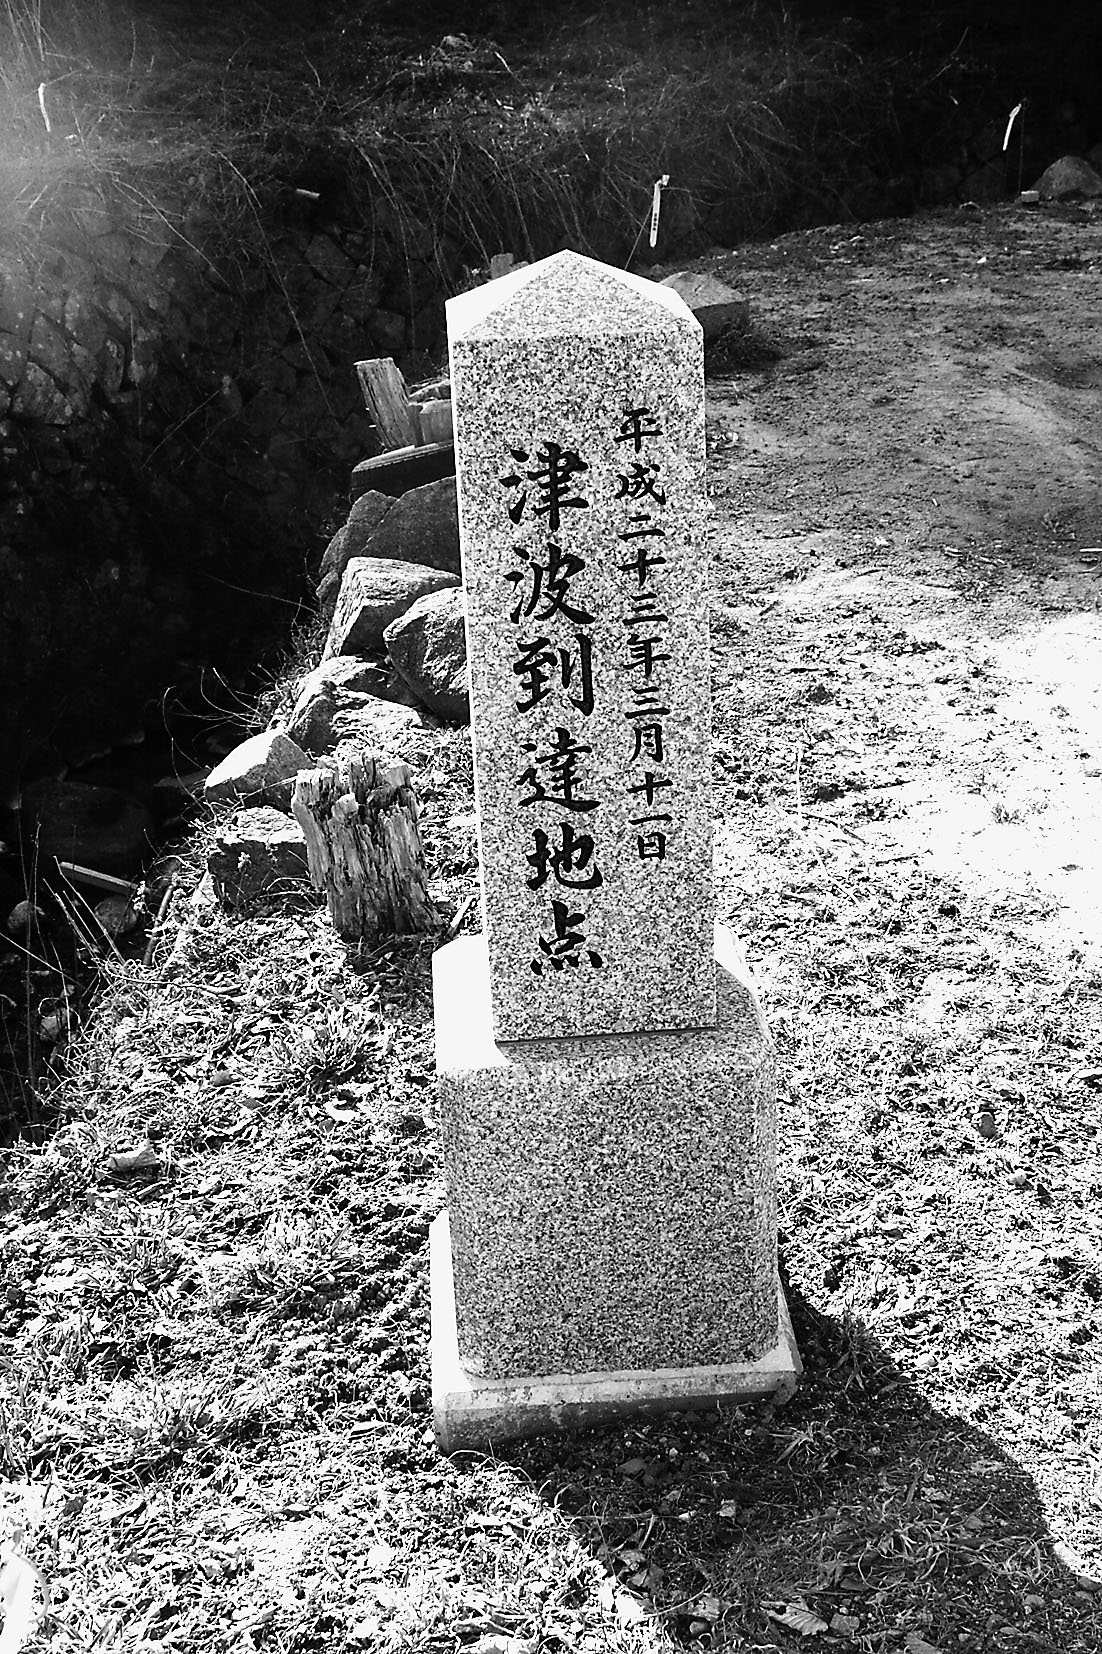 平成二十三年三月十一日
津波到達地点